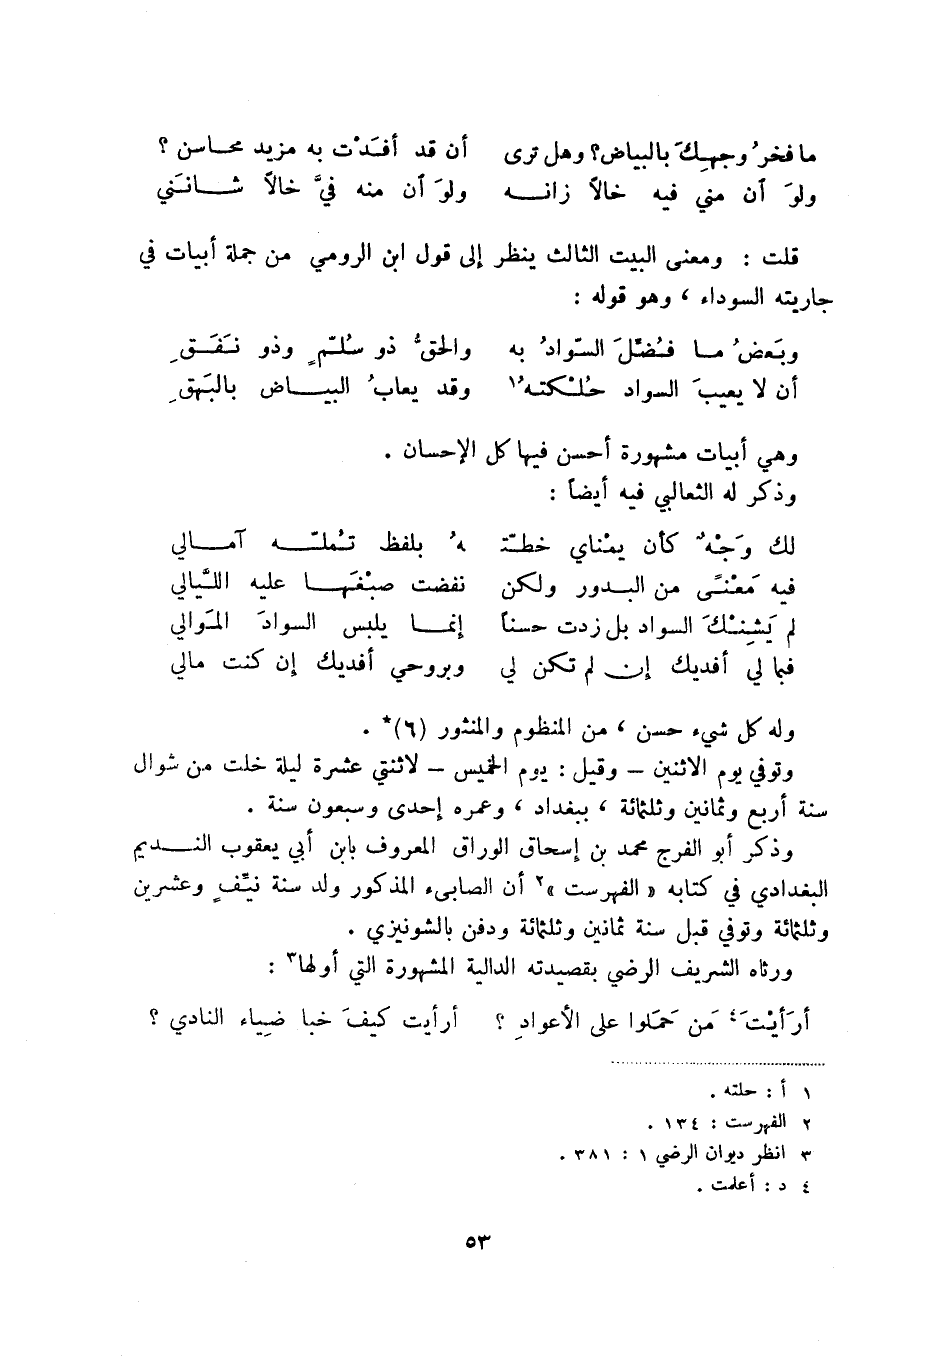 ما فخرُ وجهِكَ بالبياض؟ وهل ترى أن قد أفَدْت به مزيد محاسن ؟
ولوَ أن مني فيه خالاً زانه ولوَ أن منه فيَّ خالاً شانَني
قلت : ومعنى البيت الثالث ينظر إلى قول ابن الرومي من جملة أبيات في
جاريته السوداء ، وهو قوله :
وبَعضُ ما فُضّلَ السّوادُ به والحقُّ ذو سُلّمٍ وذو نَفَقِ
أن لا يعيبَ السواد حُلْكتهُ١ وقد يعابُ البياض بالبَهقِ
وهي أبيات مشهورة أحسن فيها كل الإحسان .
وذكر له الثعالبي فيه أيضاً :
لك وَجْهٌ كأن يمْناي خطتْ هُ بلفظ تُملّه آمالي
فيه مَعْنىً من البدور ولكن نفضت صبْغَها عليه اللّيالي
لم يَشِنْكَ السواد بل زدت حسناً إنما يلبس السوادَ المَوالي
فبما لي أفديك إن لم تكن لي وبروحي أفديك إن كنت مالي
وله كل شيء حسن ، من المنظوم والمنثور (٦)* .
وتوفي يوم الاثنين – وقيل : يوم الخميس – لاثنتي عشرة ليلة خلت من شوال
سنة أربع وثمانين وثلثمائة ، ببغداد ، وعمره إحدى وسبعون سنة .
وذكر أبو الفرج محمد بن إسحاق الوراق المعروف بابن أبي يعقوب النديم
البغدادي في كتابه « الفهرست »٢ أن الصابىء المذكور ولد سنة نيّفٍ وعشرين
وثلثمائة وتوفي قبل سنة ثمانين وثلثمائة ودفن بالشونيزي .
ورثاه الشريف الرضي بقصيدته الدالية المشهورة التي أولها٣ :
أرَأيْتَ٤ مَن حَمَلوا على الأعوادِ ؟ أرأيت كيفَ خبا ضِياء النادي ؟
١ أ : حلته .
٢ الفهرست : ١٣٤ .
٣ انظر ديوان الرضي ١ : ٣٨١ .
٤ د : أعلمت .
٥٣